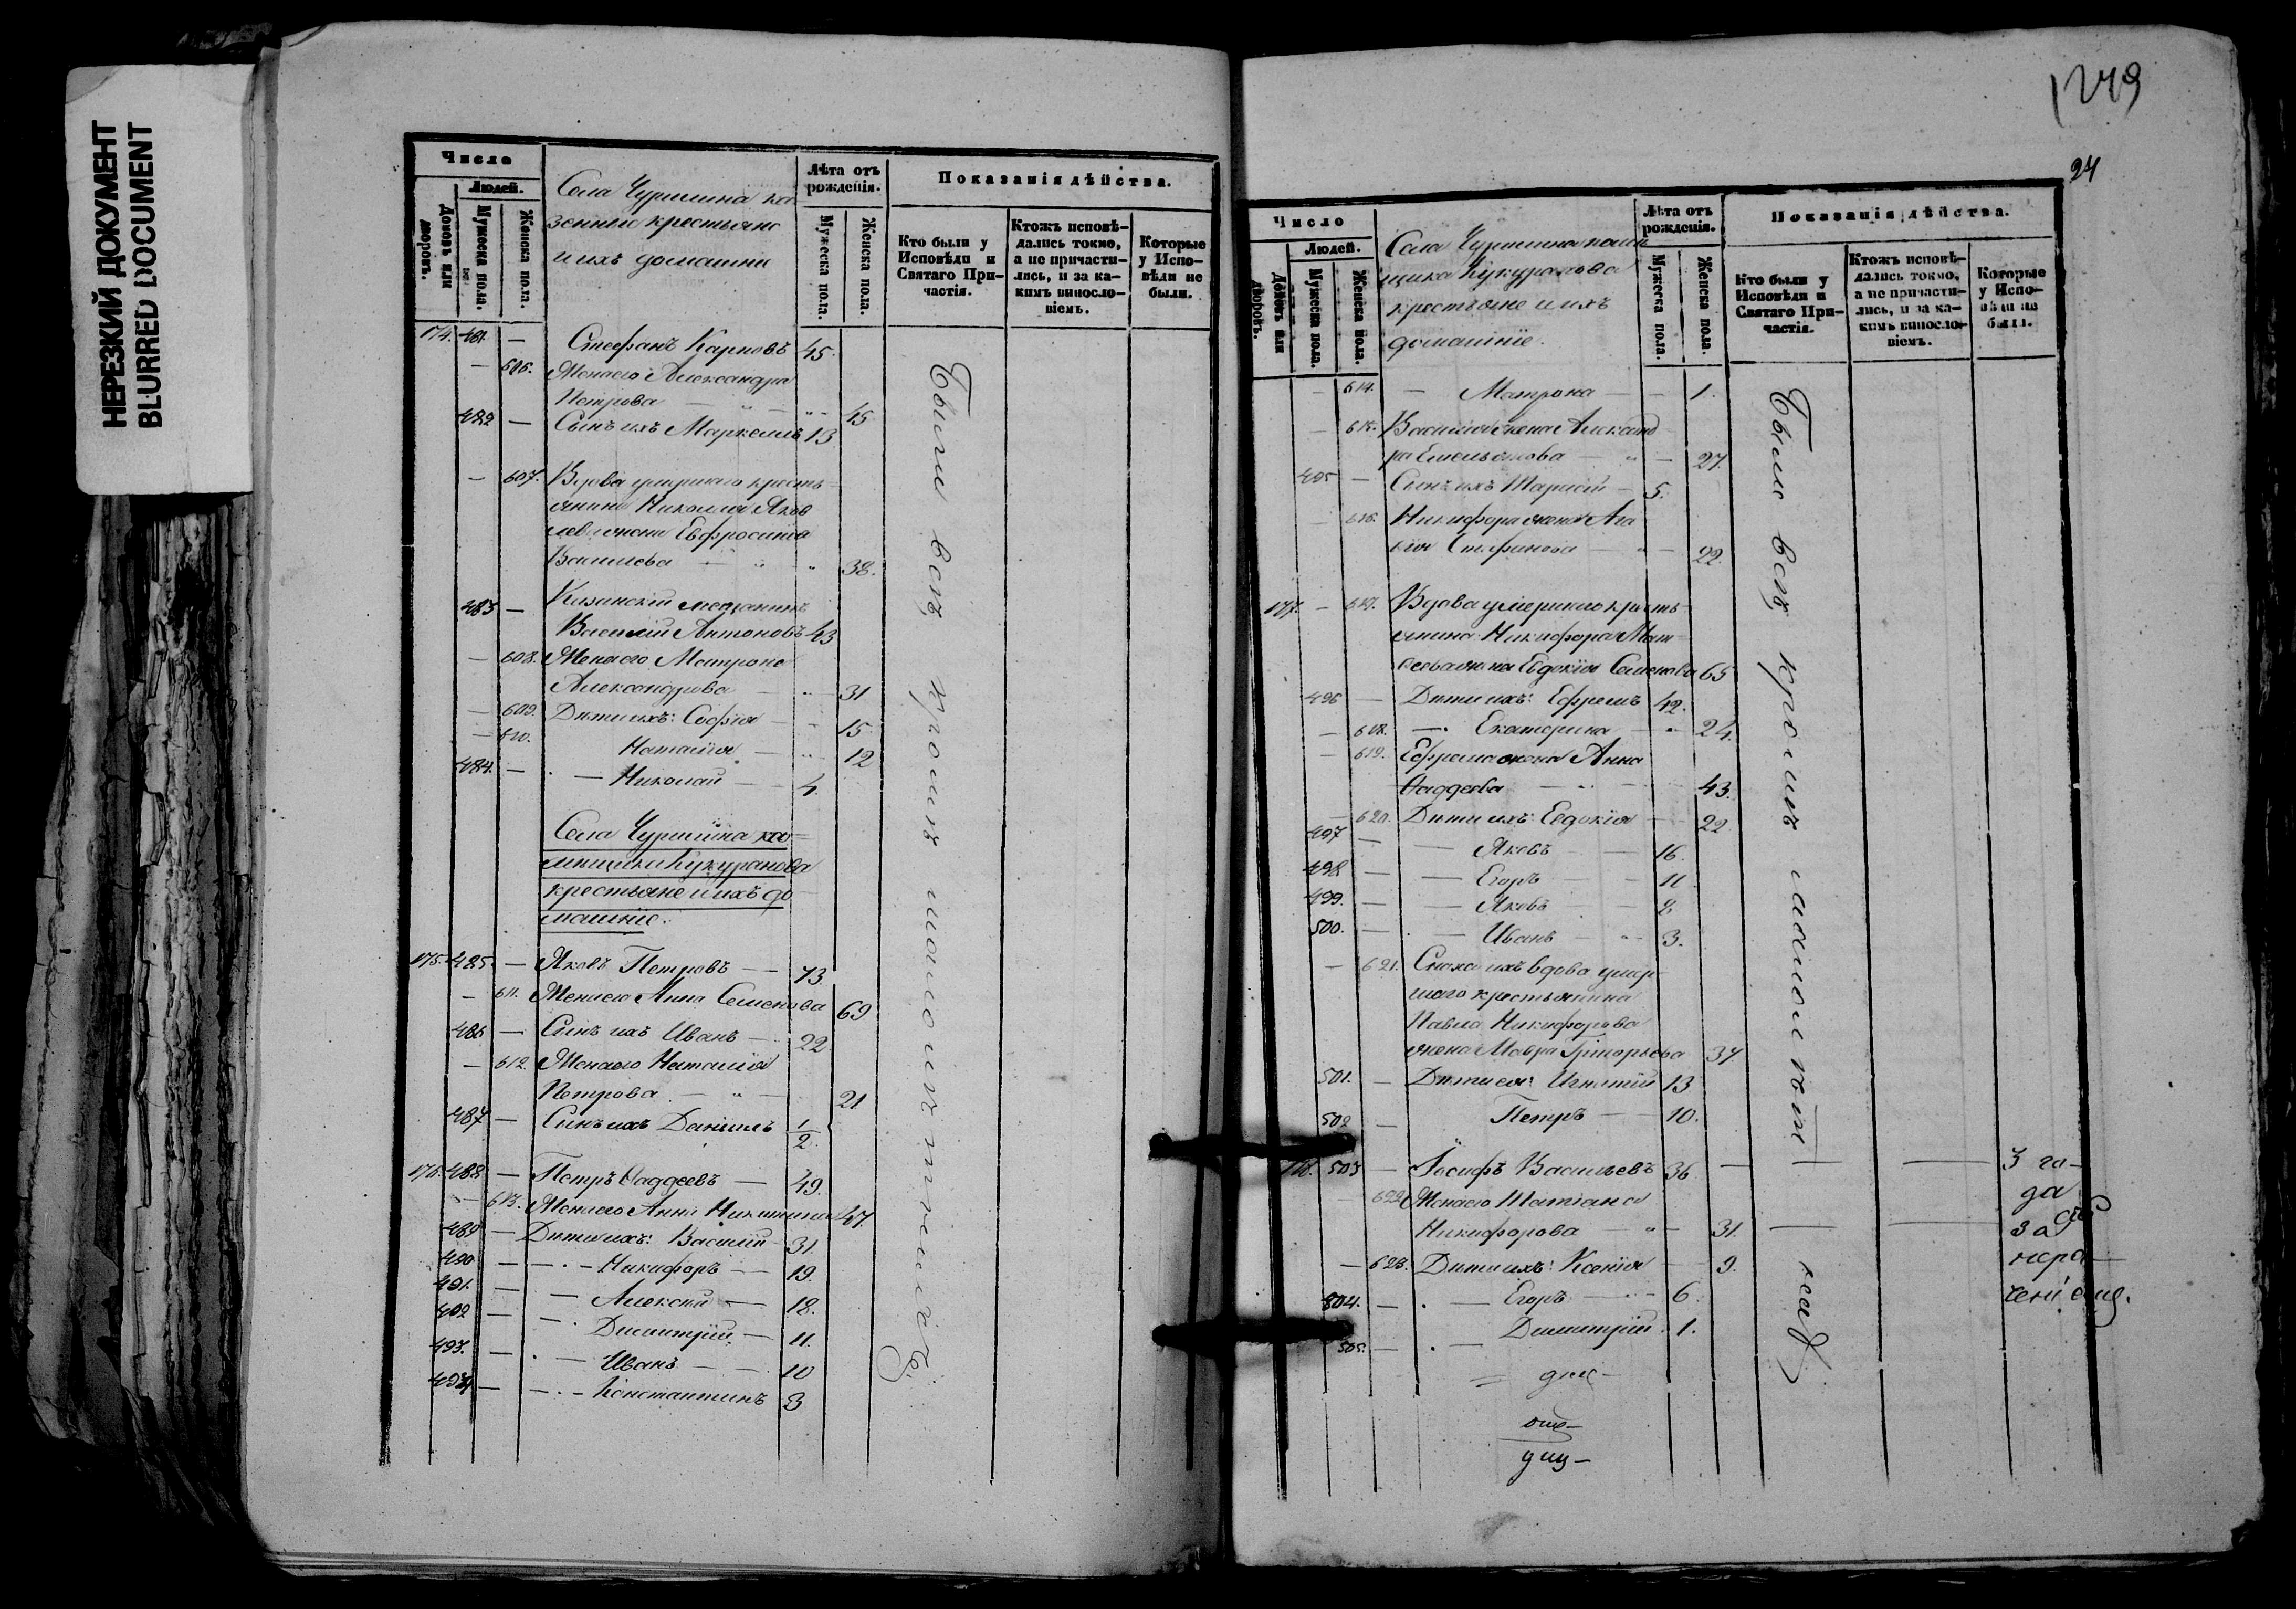 НЕРЕЗКИЙ ДОКУМЕНТ
BLURRED DOCUMENT
Число
Людей.
Домовъ или дворовъ.
Мужеска пола.
Женска пола.
Села Чурилина ка
зенные крестьяне
и ихъ домашнии
Лѣта отъ рожденія.
Мужеска пола.
Женска пола.
Показанія дѣйства.
Кто были у Исповѣди и Святаго Причастія.
Ктожъ исповѣдались токмо, а не причастились, и за какимъ винословіемъ.
Которые у Исповѣди не были.
174. 481. — Стефанъ Карповъ 45.
— 606. Жена его Александра
Петрова — 45
482 — Сынъ ихъ Маркеллъ 13
— 607. Вдова умершаго кресть
янина Николая Яков
лева жена Евфросинія
Васильева — 38.
483 — Казанскій мещанинъ
Василій Антоновъ 43
— 608. Жена его Матрона
Александрова — 31
— 609. Дѣти ихъ: Софія — 15
— 610. Наталія — 12
484. — — Николай — 4.
Села Чурилина по=
мѣщика Кукуранова
крестьяне и ихъ до
машніе.
175. 485. — Яковъ Петровъ — 73
— 611. Жена его Анна Семенова 69
486 — Сынъ ихъ Иванъ — 22
— 612. Жена его Наталія
Петрова — 21
487 — Сынъ ихъ Даніилъ 1/2.
176. 488 — Петръ Ѳаддеевъ — 49.
— 613. Жена его Анна Никитина 47
489 — Дѣти ихъ: Василій — 31.
490 — — Никифоръ — 19.
491. — — Алексѣй — 18.
492 — — Димитрій — 11.
493. — — Иванъ — 10
494 — — Константинъ 3
Были всѣ кромѣ
1249
24
Число
Людей.
Домовъ или дворовъ.
Мужеска пола.
Женска пола.
Села Чурилина помѣ
щика Кукуранова
крестьяне и ихъ
домашніе.
Лѣта отъ рожденія.
Мужеска пола.
Женска пола.
Показанія дѣйства.
Кто были у Исповѣди и Святаго Причастія.
Ктожъ исповѣдались токмо, а не причастились, и за какимъ винословіемъ.
Которые у Исповѣди не были.
— 614. — Матрона — 1.
— 615. Василія жена Александ
ра Емельянова — 27.
495 — Сынъ ихъ Тарасій — 5.
— 616. Никифора жена Ага
ѳія Стефанова — 22.
177. — 617. Вдова умершаго кресть
янина Никифора Мат
ѳеева жена Евдокія Семенова 65
496 — Дѣти ихъ: Ефремъ 42.
— 618. — Екатерина — 24.
— 619. Ефрема жена Анна
Ѳаддеева — 43.
— 620. Дѣти ихъ: Евдокія — 22
497 — — Яковъ — 16.
498 — — Егоръ — 11
499. — — Яковъ — 8
500. — — Иванъ — 3.
— 621. Сноха ихъ вдова умер
шаго крестьянина
Павла Никифорова
жена Мавра Григорьева 37.
501. — Дѣти ея: Игнатій 13
502 — Петръ — 10.
503 — Іосифъ Васильевъ 36 — — — 3 го-
да
— 622 Жена его Татіана
Никифорова — 31. — — за
— 623. Дѣти ихъ: Ксенія — 9. нера-
504. — — Егоръ — 6. ченіемъ.
505. — — Димитрій. 1.
Были всѣ кромѣ